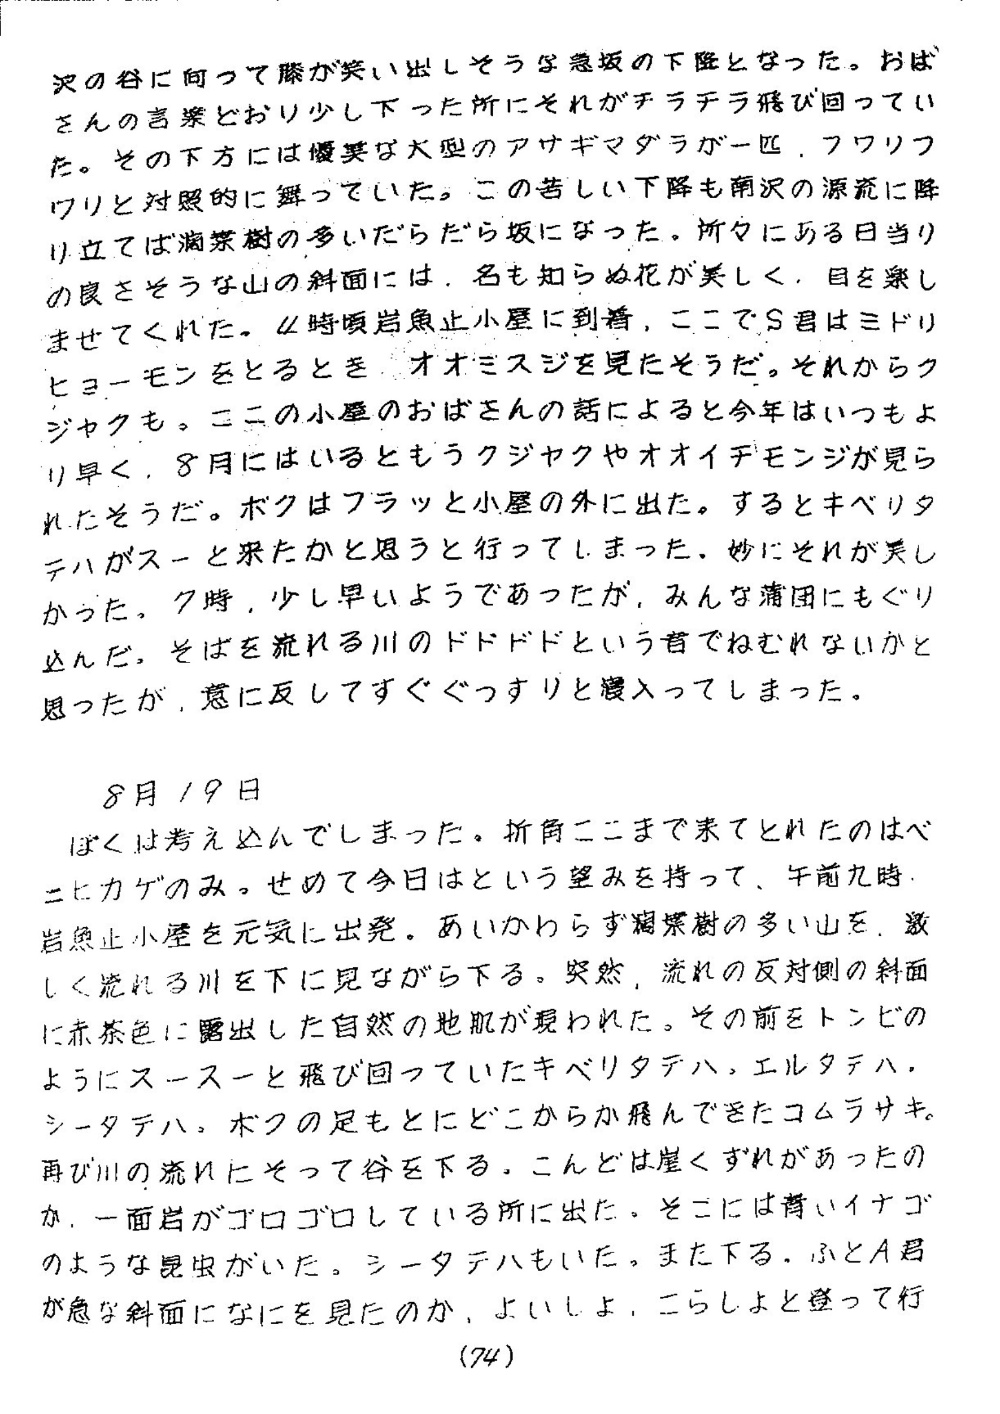 沢の谷に向って膝が笑い出しそうな急坂の下降となった。おば
さんの言葉どおり少し下った所にそれがチラチラ飛び回ってい
た。その下方には優美な大型のアサギマダラが一匹、フワリフ
ワリと対照的に舞っていた。この苦しい下降も南沢の源流に降
り立てば濶葉樹の多いだらだら坂になった。所々にある日当り
の良さそうな山の斜面には、名も知らぬ花が美しく、目を楽し
ませてくれた。4時頃岩魚止小屋に到着、ここでS君はミドリ
ヒョーモンをとるとき オオミスジを見たそうだ。それからク
ジャクも。ここの小屋のおばさんの話によると今年はいつもよ
り早く、8月にはいるともうクジャクやオオイチモンジが見ら
れたそうだ。ボクはフラッと小屋の外に出た。するとキベリタ
テハがスーと来たかと思うと行ってしまった。妙にそれが美し
かった。7時、少し早いようであったが、みんな蒲団にもぐり
込んだ。そばを流れる川のドドドドという音でねむれないかと
思ったが、意に反してすぐぐっすりと寝入ってしまった。
8月19日
ぼくは考え込んでしまった。折角ここまで来てとれたのはベ
ニヒカゲのみ。せめて今日はという望みを持って、午前九時、
岩魚止小屋を元気に出発。あいかわらず濶葉樹の多い山を、激
しく流れる川を下に見ながら下る。突然、流れの反対側の斜面
に赤茶色に露出した自然の地肌が現われた。その前をトンビの
ようにスースーと飛び回っていたキベリタテハ。エルタテハ。
シータテハ。ボクの足もとにどこからか飛んできたコムラサキ。
再び川の流れにそって谷を下る。こんどは崖くずれがあったの
か、一面岩がゴロゴロしている所に出た。そこには青いイナゴ
のような昆虫がいた。シータテハもいた。また下る。ふとA君
が急な斜面になにを見たのか、よいしょ、こらしよと登って行
(74)